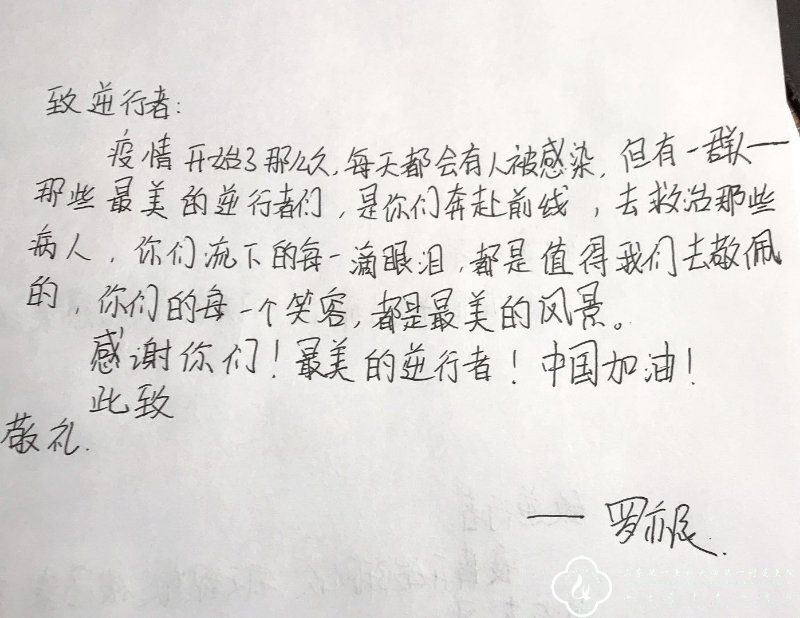 致逆行者:
疫情开始了那么久,每天都会有人被感染,但有一群人一
那些最美的逆行者们,是你们奔赴前线,去救治那些
病人,你们流下的每一滴眼泪,都是值得我们去敬佩
的,你们的每一个笑容,都是最美的风景。
感谢你们!最美的逆行者!中国加油!
此致
敬礼.
——罗亦